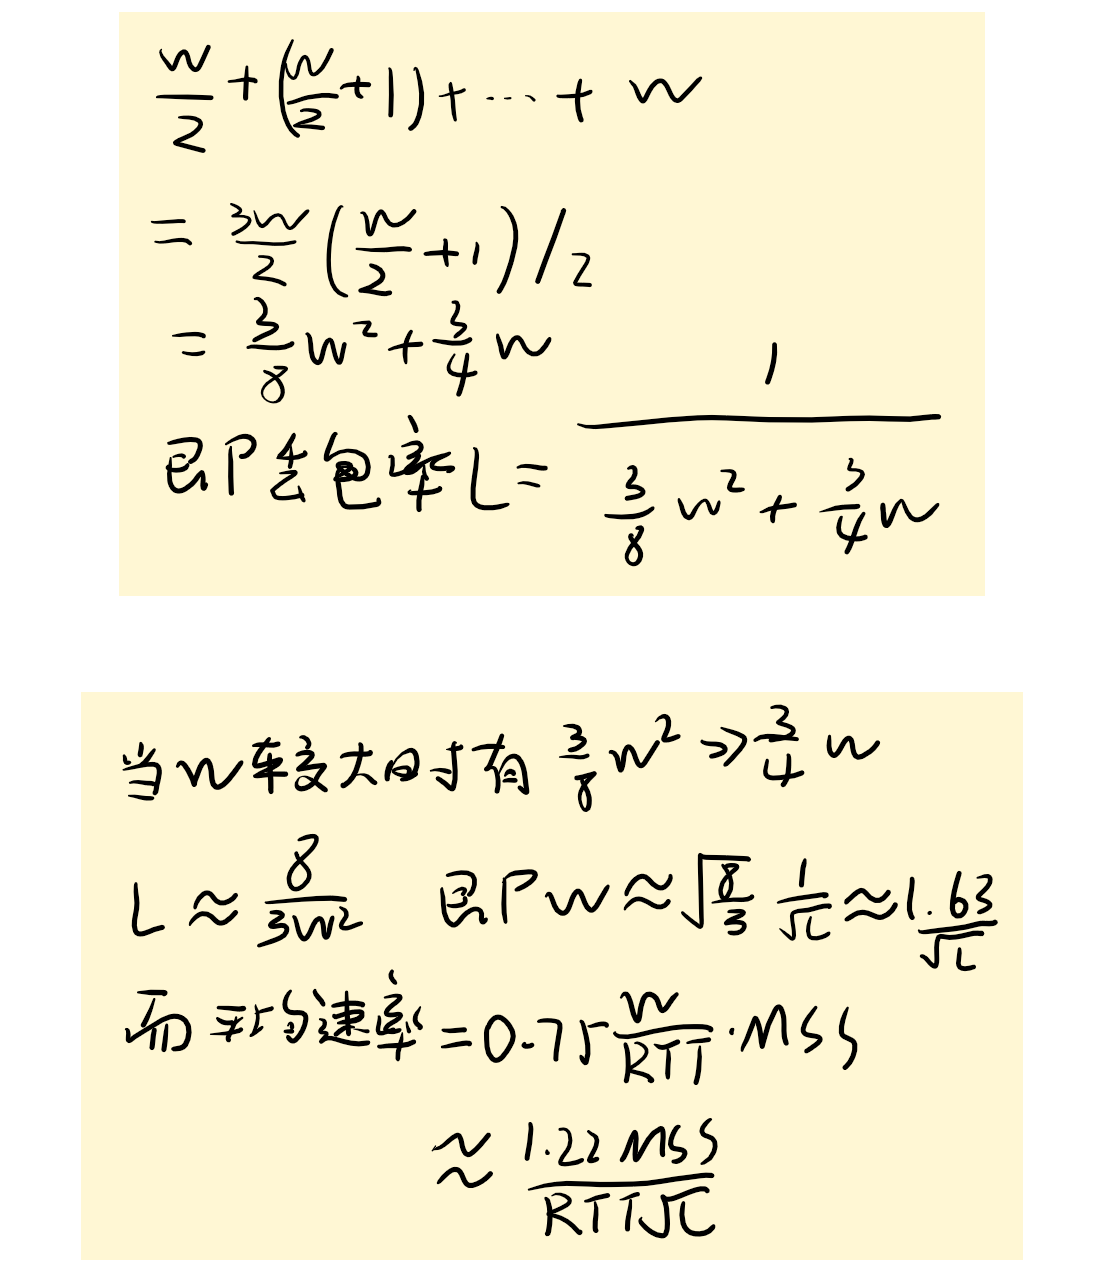 w/2 + (w/2 + 1) + ... + w
= 3w/2 (w/2 + 1) / 2
= 3/8 w² + 3/4 w
即丢包率 L = 1 / (3/8 w² + 3/4 w)
当w较大时有 3/8 w² >> 3/4 w
L ≈ 8/(3w²) 即 w ≈ √(8/3) 1/√L ≈ 1.63/√L
而平均速率 = 0.75 w/RTT · MSS
≈ 1.22 MSS / (RTT√L)